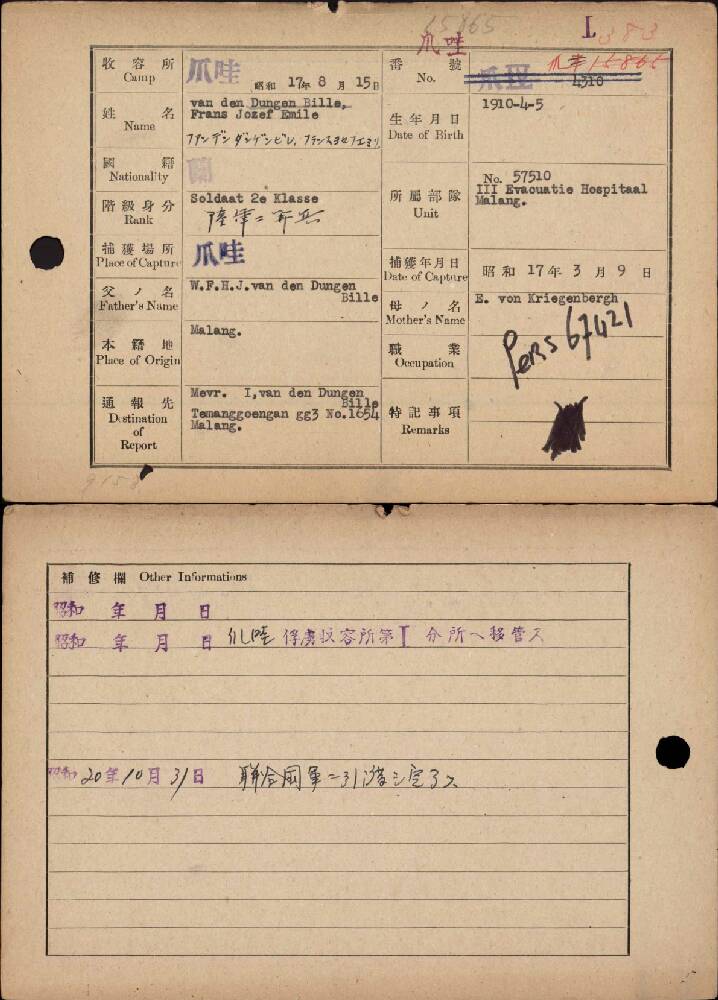 15865
爪哇 I 383
收容所
Camp
爪哇
昭和 17年 8月 15日
番號
No.
爪哇 4310
爪哇 15865
姓名
Name
van den Dungen Bille,
Frans Jozef Emile
生年月日
Date of Birth
1910-4-5
國籍
Nationality
蘭
階級身分
Rank
Soldaat 2e Klasse
所屬部隊
Unit
No. 57510
III Evacuatie Hospitaal
Malang.
捕獲場所
Place of Capture
爪哇
捕獲年月日
Date of Capture
昭和 17年 3月 9日
父ノ名
Father's Name
W.F.H.J.van den Dungen
Bille
母ノ名
Mother's Name
E. von Kriegenbergh
本籍地
Place of Origin
Malang.
職業
Occupation
Pers 67421
通報先
Destination
of
Report
Mevr. I,van den Dungen
Bille
Temanggoengan gg3 No.1654
Malang.
特記事項
Remarks
9158
補修欄 Other Informations
昭和 年 月 日
昭和 年 月 日 爪哇俘虜收容所第I分所ヘ移管ス
昭和20年10月31日 聯合國軍ニ引渡シ完了ス